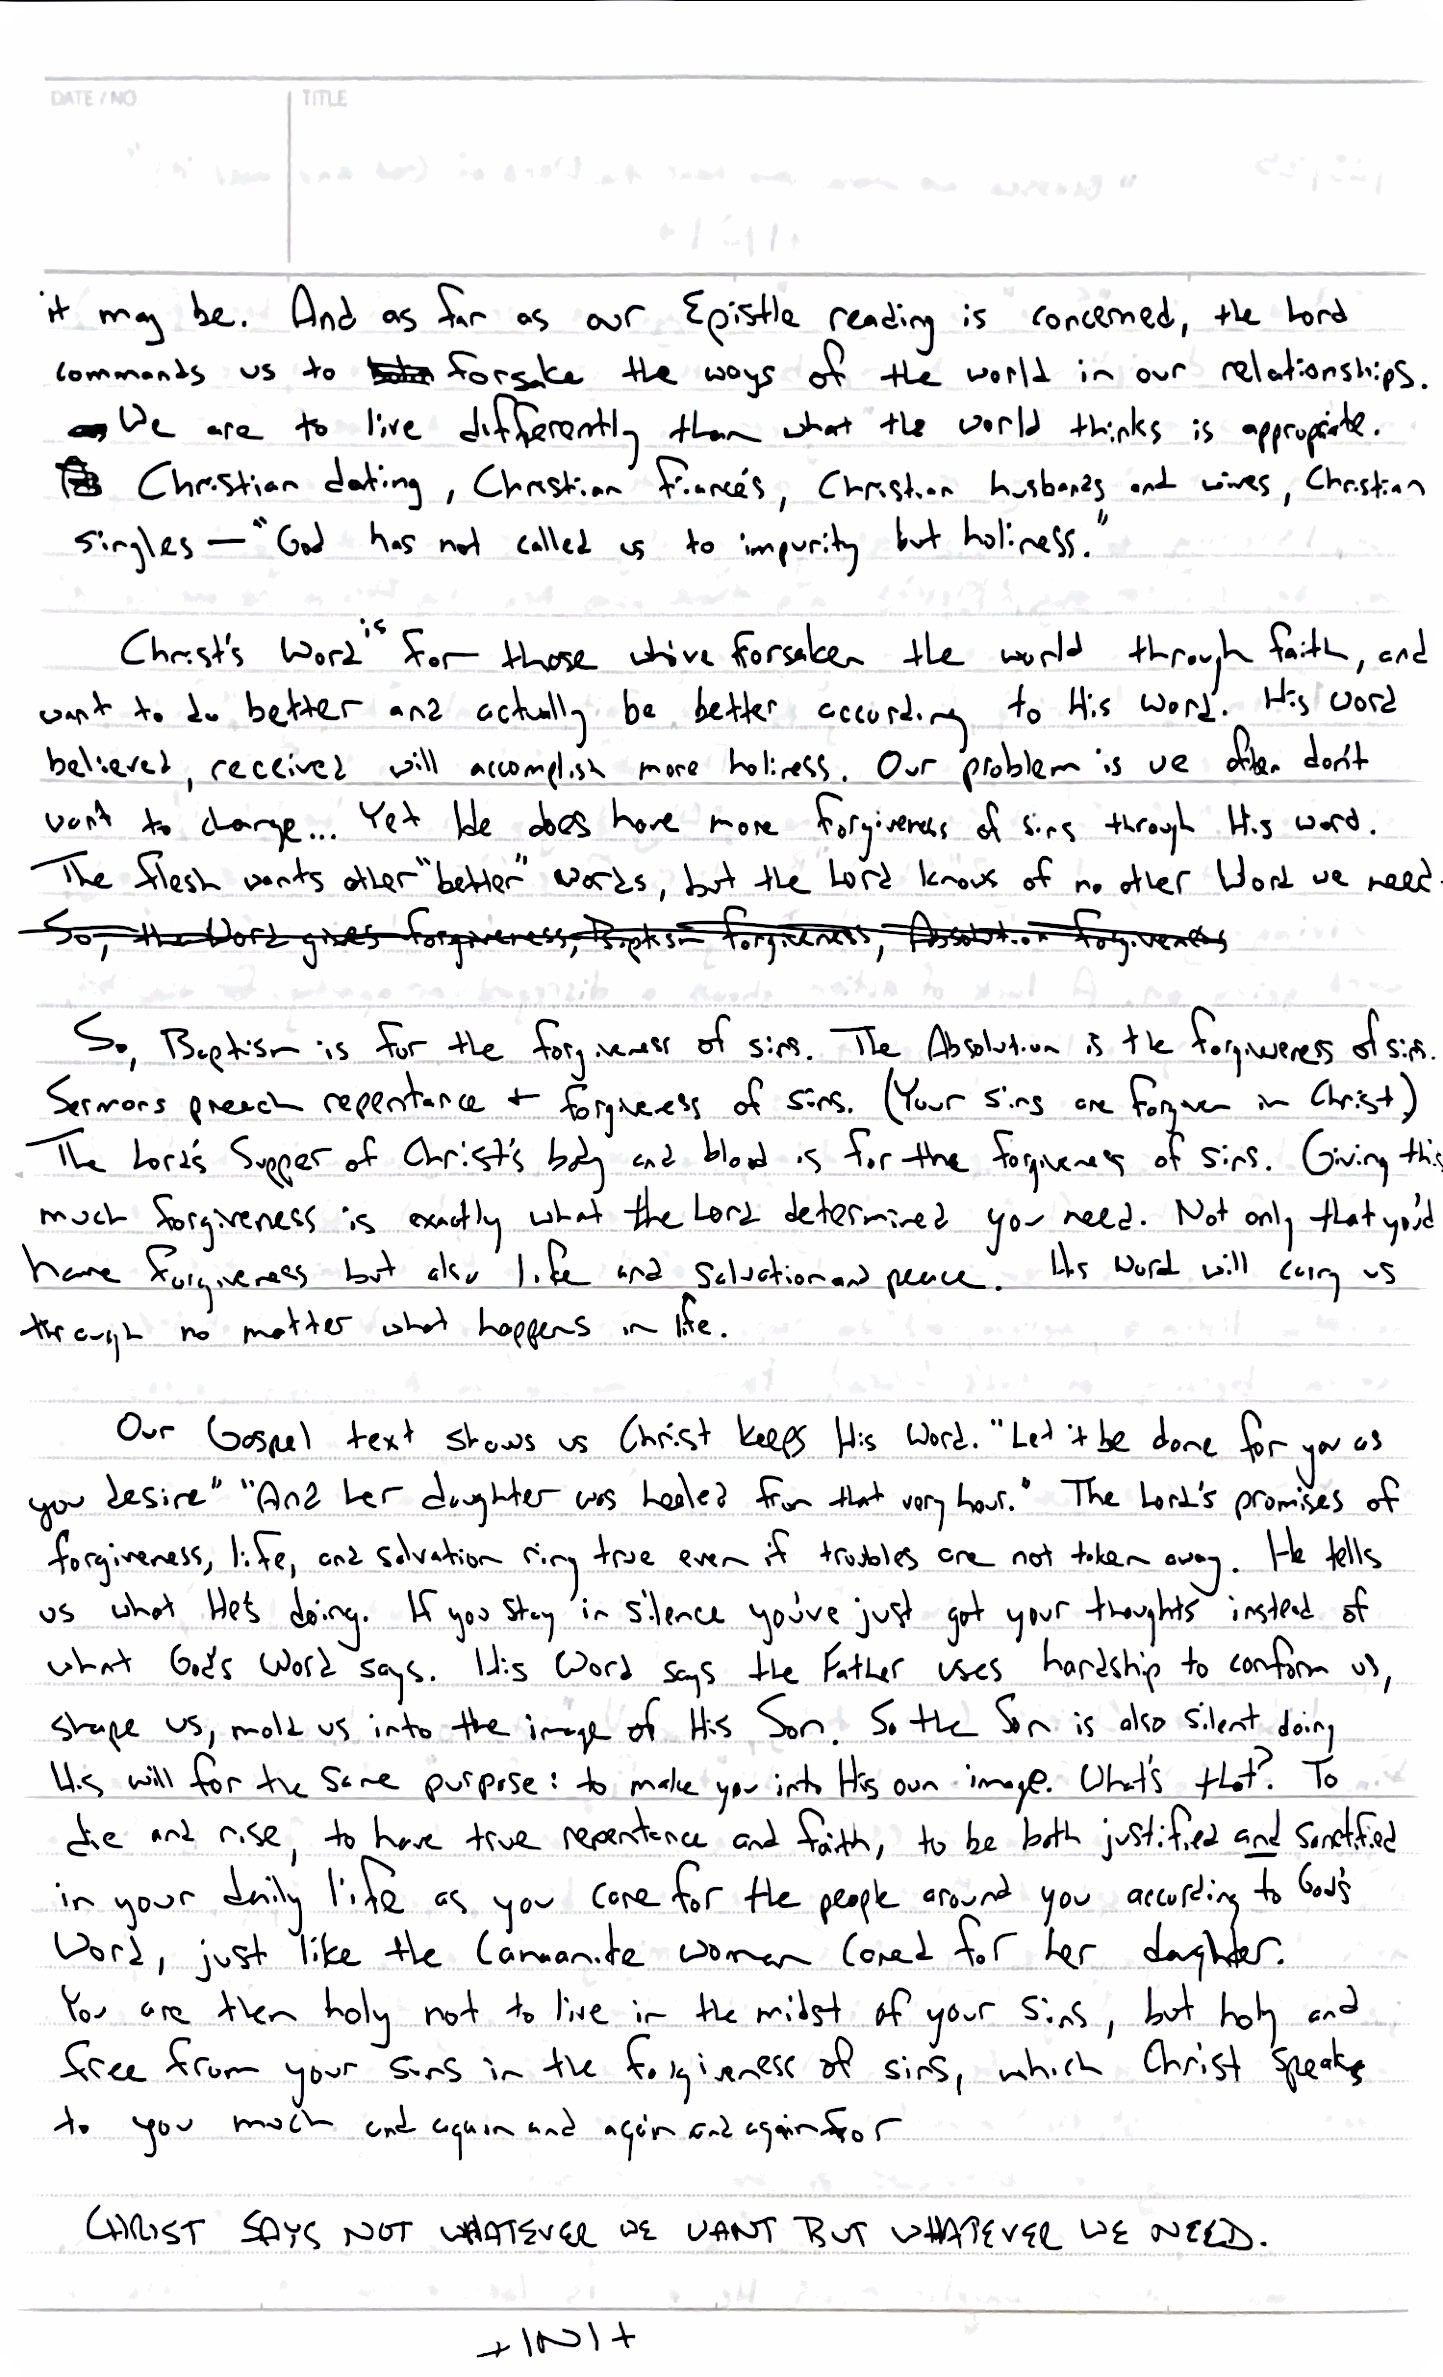 DATE / NO
TITLE
it may be. And as far as our Epistle reading is concerned, the Lord
commands us to forsake the ways of the world in our relationships.
We are to live differently than what the world thinks is appropriate.
Christian dating, Christian fiancés, Christian husbands and wives, Christian
singles — "God has not called us to impurity but holiness."
Christ's Word is for those who've forsaken the world through faith, and
want to do better and actually be better according to His word. His word
believed, received will accomplish more holiness. Our problem is we often don't
want to change... Yet He does have more forgiveness of sins through His word.
The flesh wants other "better" words, but the Lord knows of no other Word we need.
So, the Word gives forgiveness, Baptism forgiveness, Absolution forgiveness
So, Baptism is for the forgiveness of sins. The Absolution is the forgiveness of sins.
Sermons preach repentance + forgiveness of sins. (Your sins are forgiven in Christ)
The Lord's Supper of Christ's body and blood is for the forgiveness of sins. Giving this
much forgiveness is exactly what the Lord determined you need. Not only that you'd
have forgiveness but also life and salvation and peace. His Word will carry us
through no matter what happens in life.
Our Gospel text shows us Christ keeps His Word. "Let it be done for you as
you desire" "And her daughter was healed from that very hour." The Lord's promises of
forgiveness, life, and salvation ring true even if troubles are not taken away. He tells
us what He's doing. If you stay in silence you've just got your thoughts instead of
what God's Word says. His Word says the Father uses hardship to conform us,
shape us, mold us into the image of His Son. So the Son is also silent doing
His will for the same purpose: to make you into His own image. What's that? To
die and rise, to have true repentance and faith, to be both justified and sanctified
in your daily life as you care for the people around you according to God's
Word, just like the Canaanite woman cared for her daughter.
You are then holy not to live in the midst of your sins, but holy and
free from your sins in the forgiveness of sins, which Christ speaks
to you much and again and again and again for
CHRIST SAYS NOT WHATEVER WE WANT BUT WHATEVER WE NEED.
+INI+